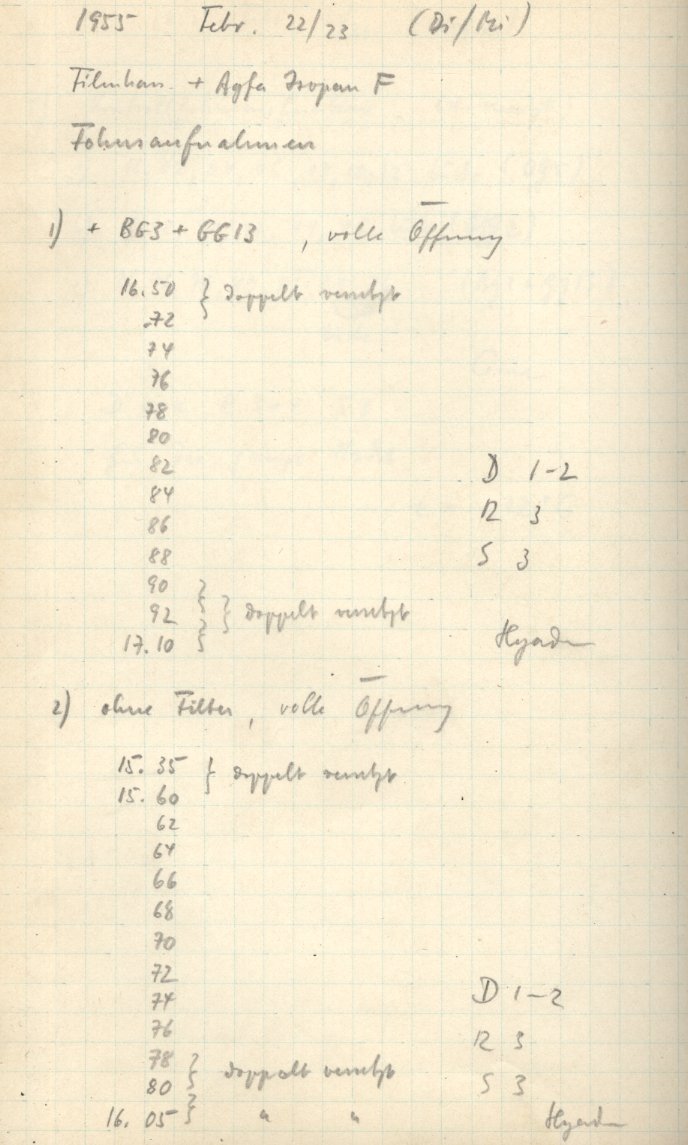 1955 Febr. 22/23 (Di/Mi)
Filmkam. + Agfa Isopan F
Fokusaufnahmen
1) + BG3 + GG13 , volle Öffnung
16.50 } doppelt versetzt
.72
74
76
78
80
82 D 1-2
84 R 3
86
88 S 3
90
92 } doppelt versetzt
17.10 Hyaden
2) ohne Filter, volle Öffnung
15.35 } doppelt versetzt
15.60
62
64
66
68
70
72
74 D 1-2
76 R 3
78 } doppelt versetzt
80 S 3
16.05 } " " Hyaden